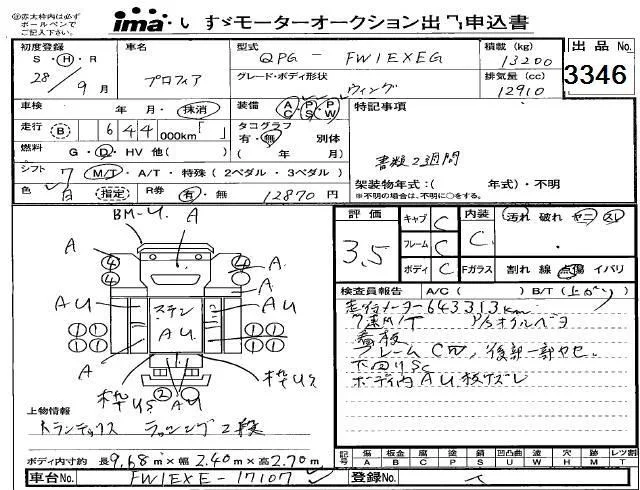 ㊟赤太枠内は必ず
ボールペンで
ご記入下さい。
ima いすゞモーターオークション出品申込書
出品No.
3346
初度登録
S・H・R
28年9月
車名
プロフィア
型式
QPG - FW1EXEG
グレード・ボディ形状
ウィング
積載(kg)
13200
排気量(cc)
12910
車検 年・月・抹消
装備 AC・PS・PW
走行 B 644000km「 」
タコグラフ
有・無 別体
( 年 月)
燃料 G・D・HV 他( )
シフト 7 M/T・A/T・特殊(2ペダル・3ペダル)
色 白 (指定) R券 有・無 12870円
特記事項
書類2週間
架装物年式:( 年式)・不明
※不明の場合は、不明に○をする。
BM-U. A
A
④ ④
A U
ステン
A U
A U
① ① ① ①
A
A
枠US ② AU 枠US
上物情報
トランテックス ラッシング2段
ボディ内寸約 長9.68m×幅2.40m×高2.70m
評価
3.5
キャブ C
フレーム C
ボディ C
内装
C
汚れ 破れ ヤニ スレ
Fガラス 割れ 線 点傷 イバリ
検査員報告 A/C( )B/T(上がり)
走行メーター643313km
7速M/T P/Sオイルベヨ
看板
フレームC凹,後部一部ヤセ.
下回りSC
ボディ内AU板ズレ
記号 傷 板金 腐 塗 錆 凹凸曲 波 穴 跡 レツ割
A B C P S U W H M T
車台No. FW1EXE-17107
登録No.